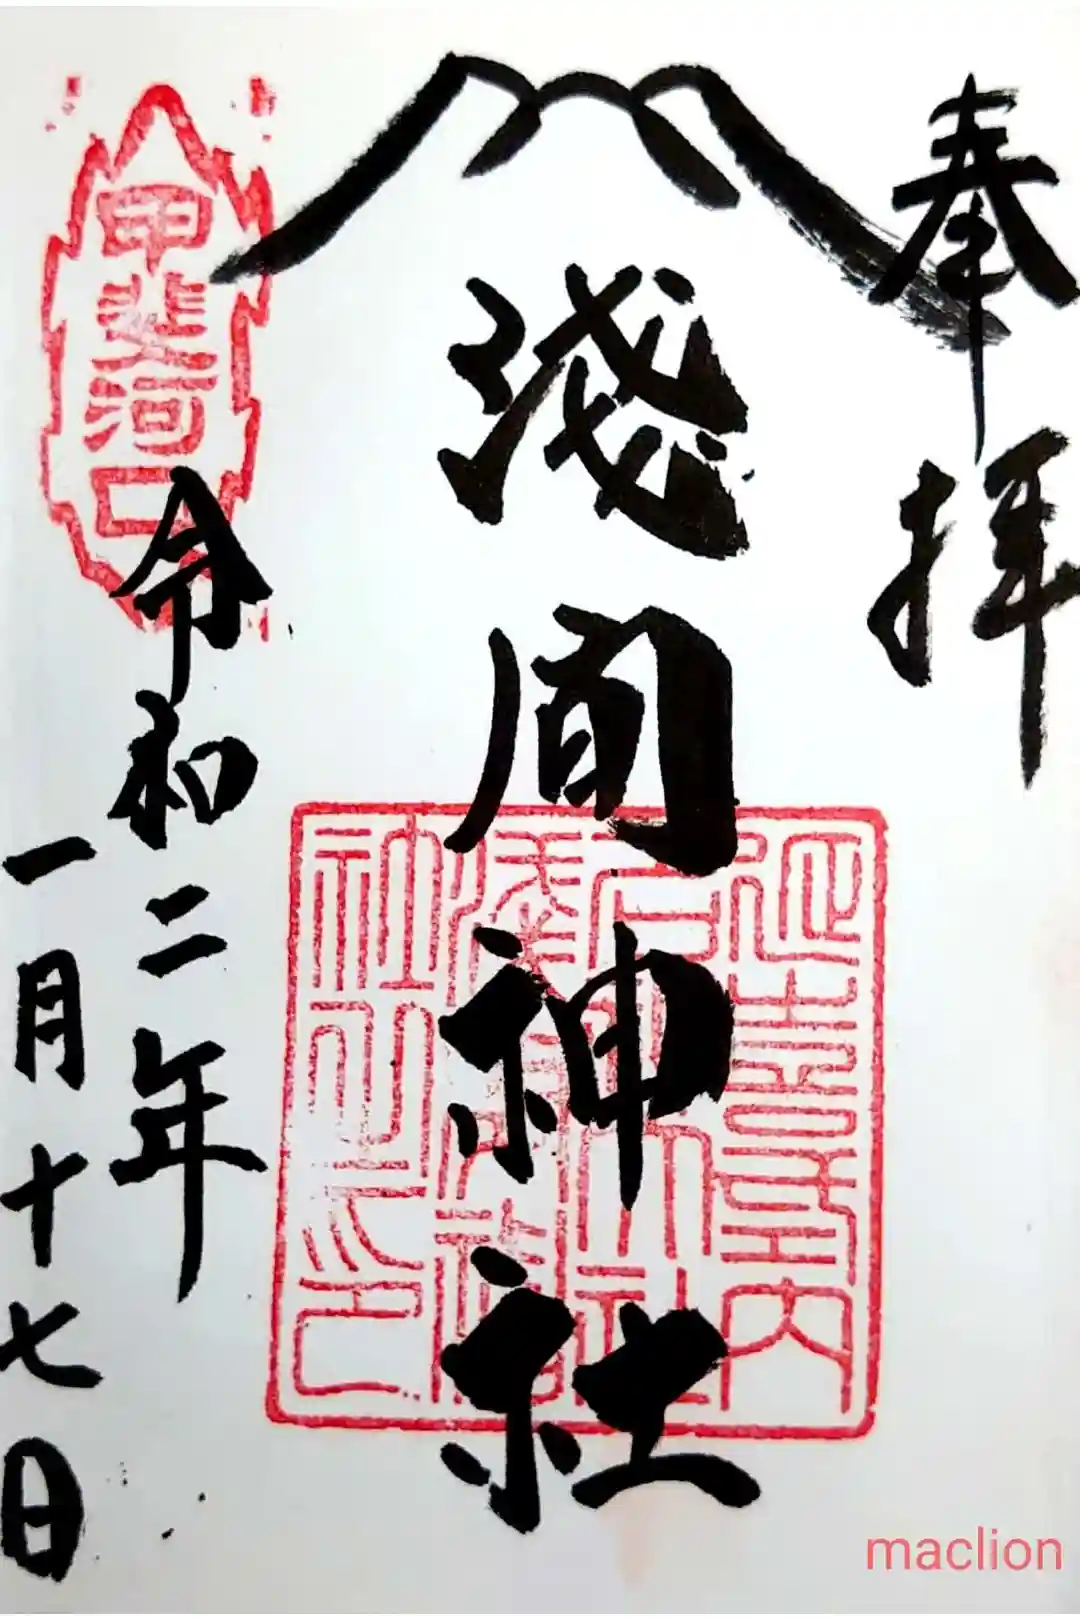 奉拝
淺間神社
延喜式内
甲斐河口
令和二年
一月十七日
maclion